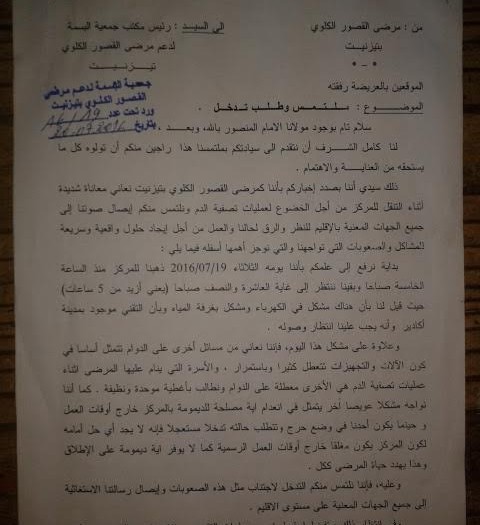 من : مرضى القصور الكلوي
بتيزنيت
- * -
الى السيد : رئيس مكتب جمعية البسمة
لدعم مرضى القصور الكلوي
تيزنيت
جمعية البسمة لدعم مرضى
القصور الكلوي بتيزنيت
ورد تحت عدد 16/19
بتاريخ 20.07.2016
الموقعين بالعريضة رفقته
الموضوع : ملتمس وطلب تدخل .
سلام تام بوجود مولانا الامام المنصور بالله، وبعد ،
لنا كامل الشرف أن نتقدم الى سيادتكم بملتمسنا هذا راجين منكم أن تولوه كل ما
يستحقه من العناية والاهتمام .
ذلك سيدي أننا بصدد إخباركم بأننا كمرضى القصور الكلوي بتيزنيت نعاني معاناة شديدة
أثناء التنقل للمركز من أجل الخضوع لعمليات تصفية الدم ونلتمس منكم إيصال صوتنا إلى
جميع الجهات المعنية بالإقليم للنظر والرق لحالنا والعمل من أجل إيجاد حلول واقعية وسريعة
للمشاكل والصعوبات التي تواجهنا والتي نوجز أهمها أسفله فيما يلي :
بداية نرفع إلى علمكم بأننا يومه الثلاثاء 2016/07/19 ذهبنا للمركز منذ الساعة
الخامسة صباحا وبقينا ننتظر إلى غاية العاشرة والنصف صباحا (يعني أزيد من 5 ساعات)
حيث قيل لنا بأن هناك مشكل في الكهرباء ومشكل بغرفة المياه وبأن التقني موجود بمدينة
أكادير وأنه يجب علينا انتظار وصوله .
وعلاوة على مشكل هذا اليوم، فإننا نعاني من مسائل أخرى على الدوام تتمثل أساسا في
كون الآلات والتجهيزات تتعطل كثيرا وباستمرار ، والأسرة التي ينام عليها المرضى اثناء
عمليات تصفية الدم هي الأخرى معطلة على الدوام ونطالب بأغطية موحدة ونظيفة . كما أننا
نواجه مشكلا عويصا آخر يتمثل في انعدام اية مصلحة للديمومة بالمركز خارج أوقات العمل
و حينما يكون أحدنا في وضع حرج وتتطلب حالته تدخلا مستعجلا فإنه لا يجد أي حل أمامه
لكون المركز يكون مغلقا خارج أوقات العمل الرسمية كما لا يوفر اية ديمومة على الإطلاق
وهذا يهدد حياة المرضى ككل .
وعليه، فإننا نلتمس منكم التدخل لاجتناب مثل هذه الصعوبات وإيصال رسالتنا الاستغاثية
إلى جميع الجهات المعنية على مستوى الاقليم .